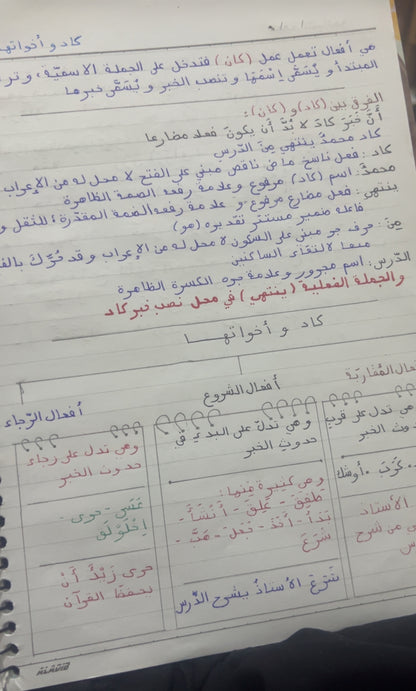 كاد و أخواتها
هي أفعال تعمل عمل (كان) فتدخل على الجملة الاسمية، وتر
المبتدأ و يُسَمَّى اِسْمَهَا و تنصب الخبر و يُسَمَّى خبرها
الفرق بين (كاد) و (كان):
أَنَّ خَبَرَ كَادَ لا بُدَّ أن يكونَ فعلا مضارعا
كاد محمدٌ ينتهي مِنَ الدّرسِ
كاد: فعل ناسخ ماض ناقص مبني على الفتح لا محل له من الإعراب
محمدٌ: اسم (كاد) مرفوع وعلامة رفعه الضمة الظاهرة
ينتهي: فعل مضارع مرفوع و علامة رفعه الضمة المقدّرة للثقل و
فاعله ضمير مستتر تقديره (هو)
مِنَ: حرف جر مبني على السكون لا محل له من الإعراب و قد حُرِّكَ بالف
منعا لالتقاء الساكنين
الدّرسِ: اسم مجرور وعلامة جره الكسرة الظاهرة
والجملة الفعلية (ينتهي) في محل نصب خبر كاد
كاد و أخواتهـا
أفعال المُقاربة
هي تدل على قرب
حدوث الخبر
كَرَبَ . أوشك
الأستاذ
من شرح
أفعال الشروع
وهي تدلّ على البدء في
حدوث الخبر
و هي كثيرة منها:
طفق - عَلِقَ - أَنْشَأَ -
بَدَأَ - أخَذَ - جَعَلَ - هَبَّ -
شَرَعَ
شَرَعَ الأستاذُ يشرح الدّرس
أفعال الرّجاء
وهي تدل على رجاء
حدوث الخبر
عَسَى - حرى -
اِخْلَوْلَقَ
حرى زَيْدٌ أَنْ
يحفظَ القرآن